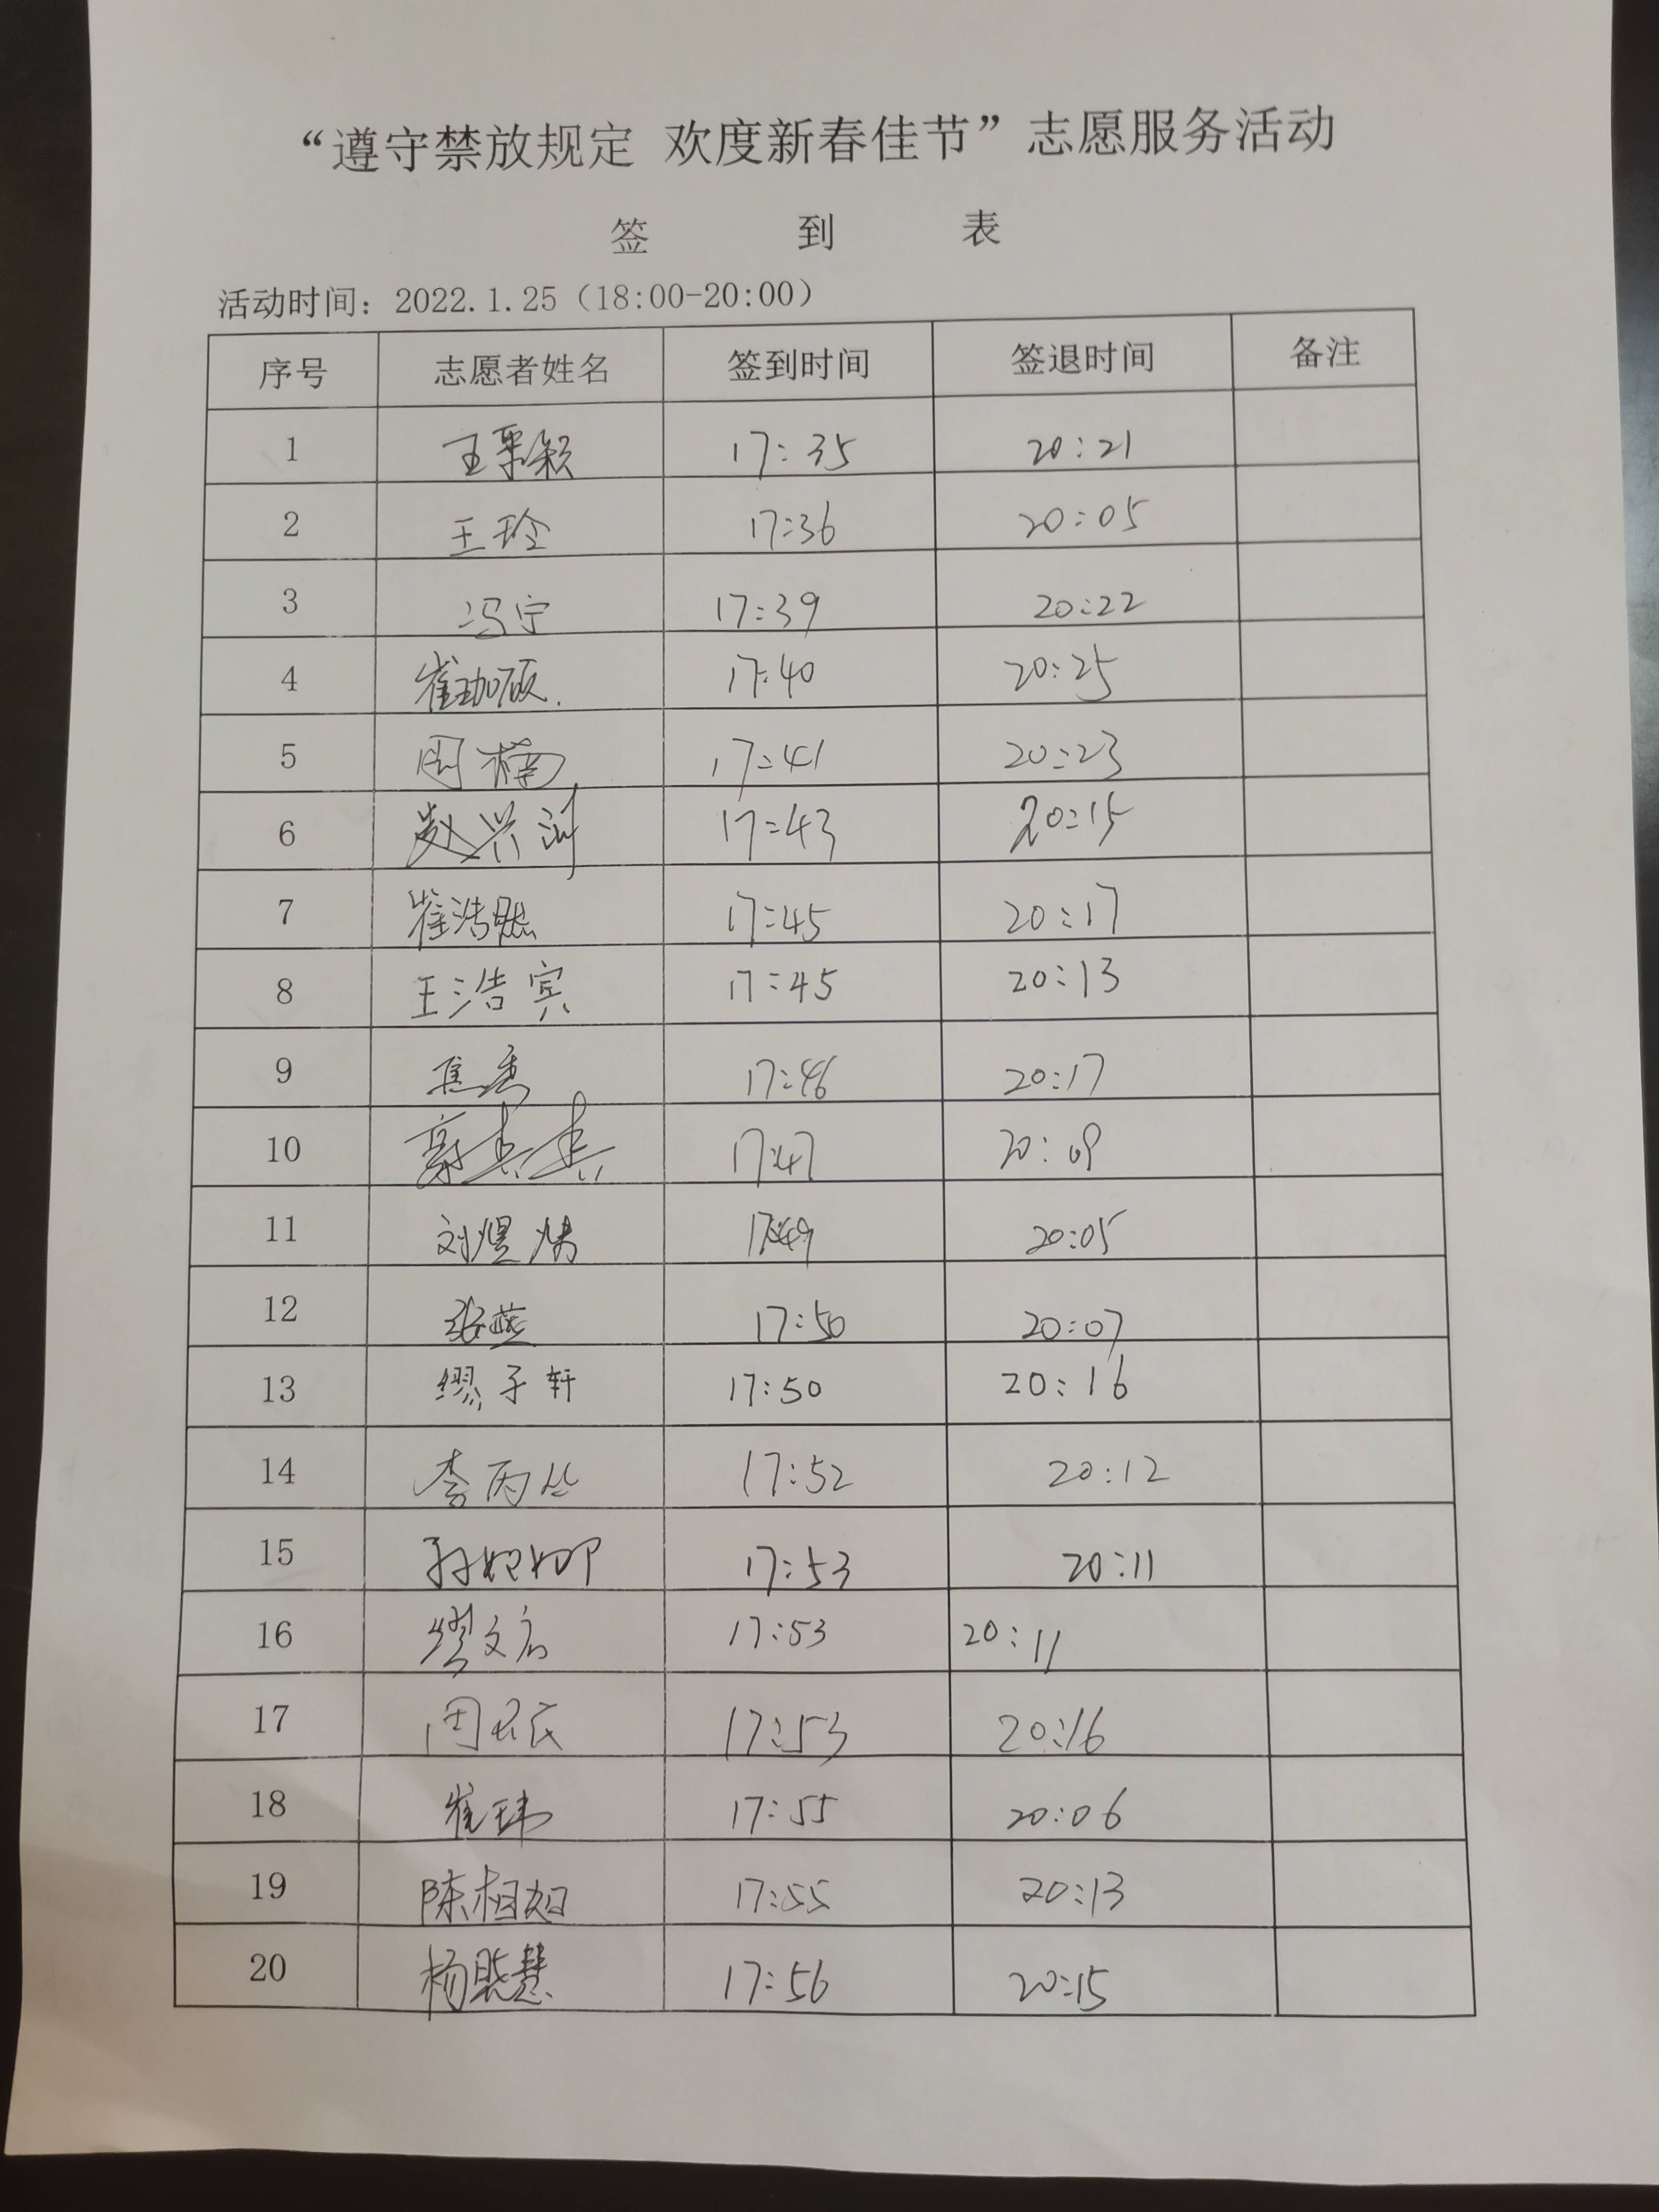 “遵守禁放规定 欢度新春佳节”志愿服务活动
签 到 表
活动时间：2022.1.25（18:00-20:00）
序号 志愿者姓名 签到时间 签退时间 备注
1 王 17:35 20:21
2 王玲 17:36 20:05
3 冯宁 17:39 20:22
4 崔珈硕 17:40 20:25
5 周楠 17:41 20:23
6 赵兴 17:43 20:15
7 崔浩然 17:45 20:17
8 王浩宾 17:45 20:13
9 焦 17:46 20:17
10 17:47 20:09
11 刘煜 17:49 20:05
12 张燕 17:50 20:07
13 缪子轩 17:50 20:16
14 李丙丛 17:52 20:12
15 孙 17:53 20:11
16 缪文 17:53 20:11
17 周 17:53 20:16
18 崔玮 17:55 20:06
19 陈相如 17:55 20:13
20 杨晓慧 17:56 20:15